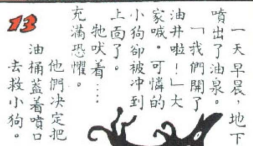 13
一天早晨，地下
噴出了油泉。
「我們開了
油井啦！」大
家喊。可憐的
小狗卻被冲到
上面了。
牠吠着……
充滿恐懼。
他們決定把
油桶蓋着噴口
去救小狗。